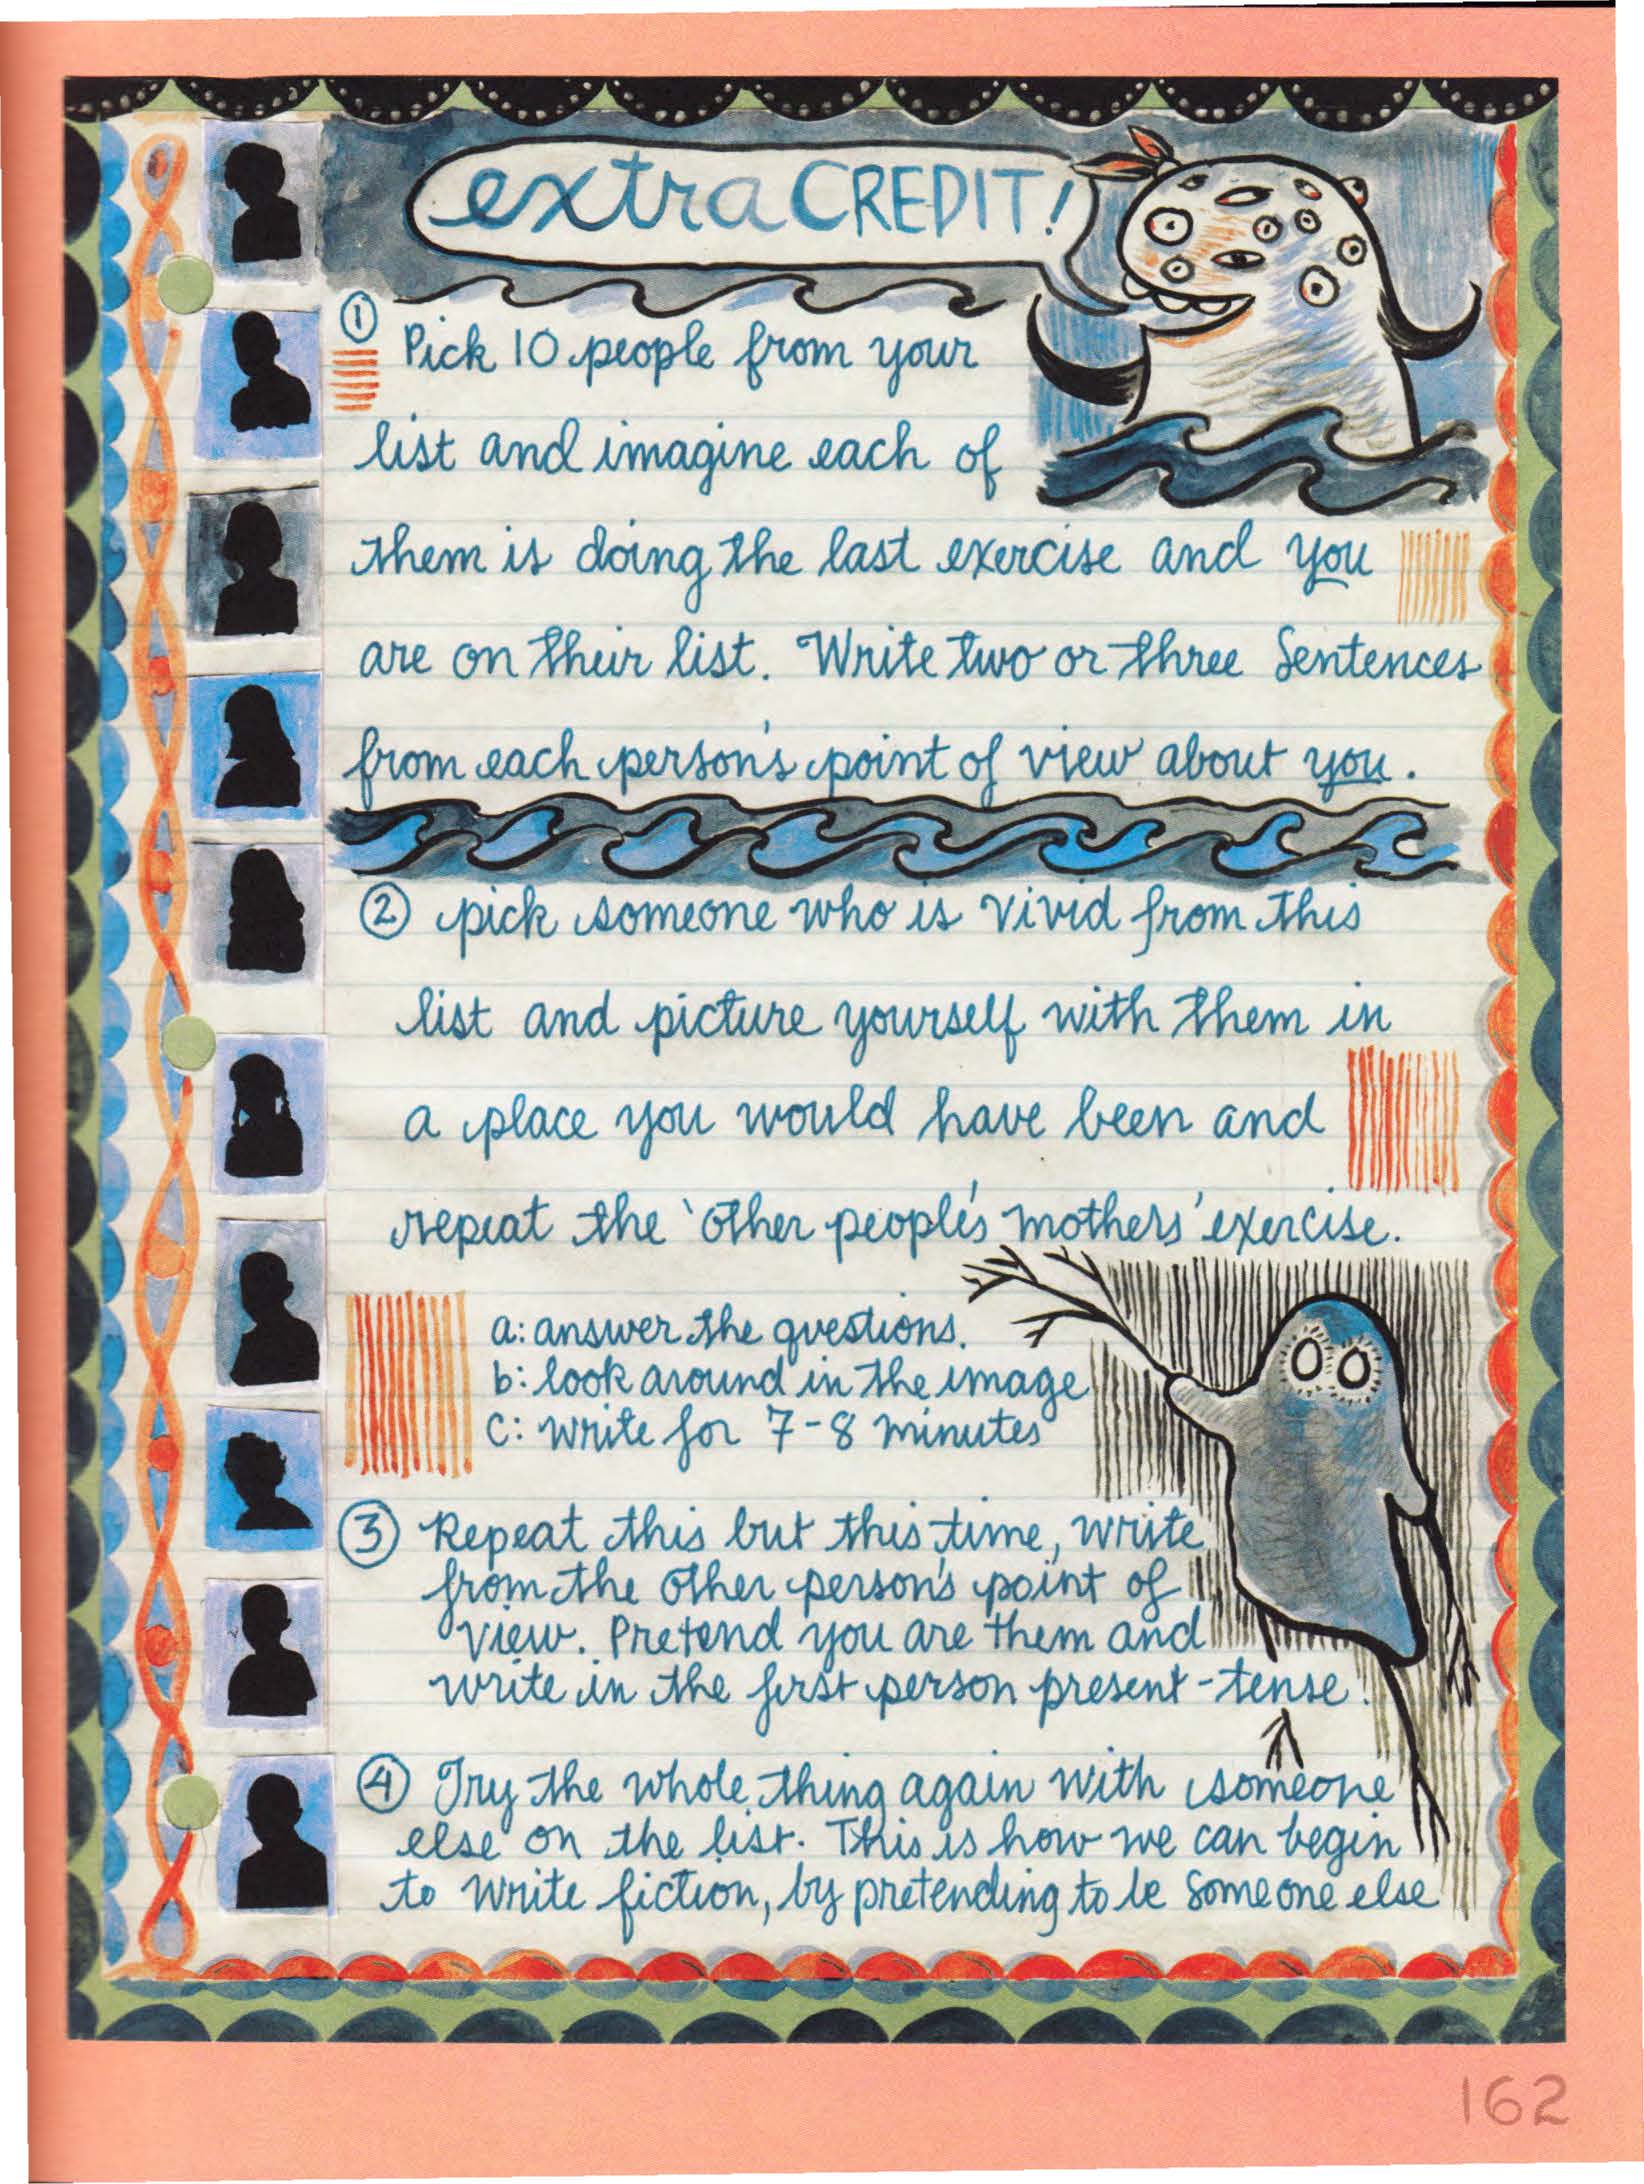 extra CREDIT!
① Pick 10 people from your
list and imagine each of
them is doing the last exercise and you
are on their list. Write two or three Sentences
from each person's point of view about you.
② pick someone who is vivid from this
list and picture yourself with them in
a place you would have been and
repeat the 'other people's mothers' exercise.
a: answer the questions.
b: look around in the image
c: write for 7-8 minutes
③ Repeat this but this time, write
from the other person's point of
view. Pretend you are them and
write in the first person present-tense!
④ Try the whole thing again with someone
else on the list. This is how we can begin
to write fiction, by pretending to be someone else
162